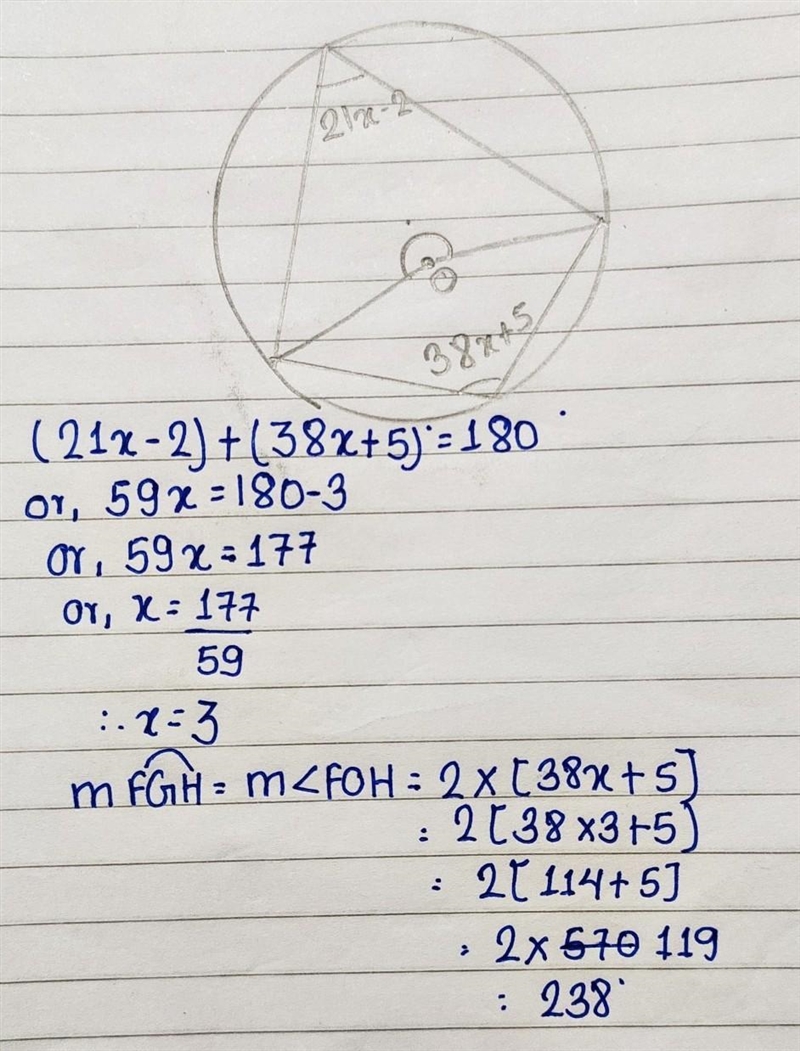 21x-2
O
38x+5
(21x-2)+(38x+5)°=180°
or, 59x=180-3
or, 59x=177
or, x=177
59
∴x=3
m FGH= m<FOH = 2×[38x+5]
= 2[38×3+5]
= 2[114+5]
= 2×570 119
= 238°